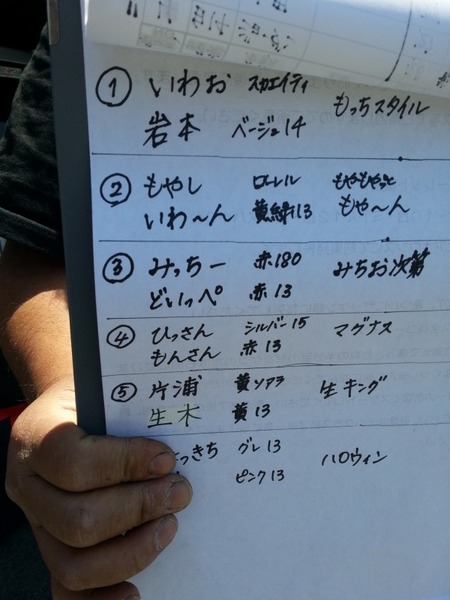 ① いわお スカエイティ もっちスタイル
岩本 ベージュ14
② もやし ローレル
いわ〜ん 黄緑13 もや〜ん
③ みっちー 赤180 みちお次第
どいっぺ 赤13
④ ひっさん シルバー15 マグナス
もんさん 赤13
⑤ 片浦 黄ソアラ 生キング
生木 黄13
っきち グレ13 ハロウィン
ピンク13